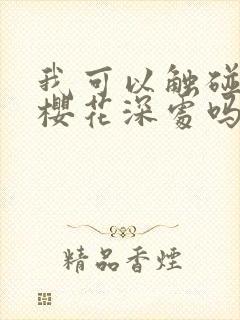 我可以触碰
樱花深处吗
精品香煙